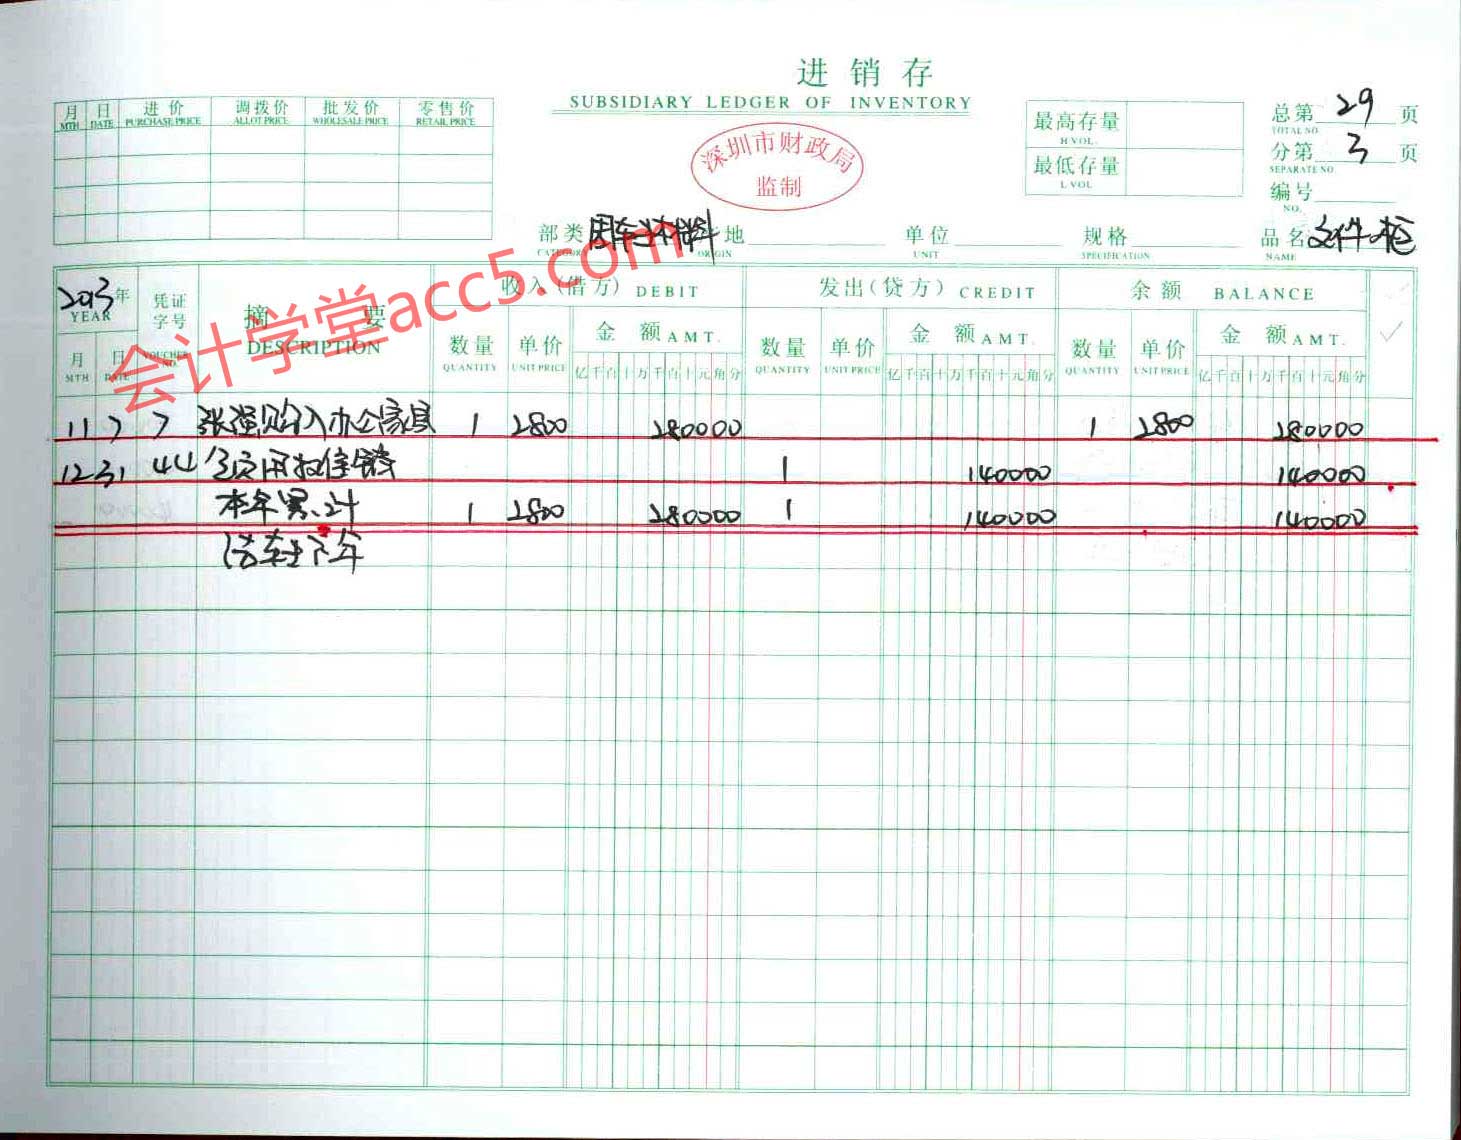 进销存
SUBSIDIARY LEDGER OF INVENTORY
深圳市财政局
监制
月 日 进价 调拨价 批发价 零售价
MTH DATE PURCHASE PRICE ALLOT PRICE WHOLESALE PRICE RETAIL PRICE
最高存量
H VOL.
最低存量
L VOL
总第 29 页
TOTAL NO
分第 3 页
SEPARATE NO
编号
NO.
部类 周转材料 地 单位 规格 品名 文件柜
CATEGORY ORIGIN UNIT SPECIFICATION NAME
会计学堂acc5.com
2013年 凭证字号 摘要 收入(借方) DEBIT 发出(贷方) CREDIT 余额 BALANCE
YEAR VOUCHER NO. DESCRIPTION
月 日 数量 单价 金额 AMT. 数量 单价 金额 AMT. 数量 单价 金额 AMT.
MTH DATE QUANTITY UNIT PRICE QUANTITY UNIT PRICE QUANTITY UNIT PRICE
亿千百十万千百十元角分 亿千百十万千百十元角分 亿千百十万千百十元角分
11 7 7 张强购入办公家具 1 2800 280000 1 2800 280000
12 31 44 1 140000 140000
本年累计 1 2800 280000 1 140000 140000
结转下年